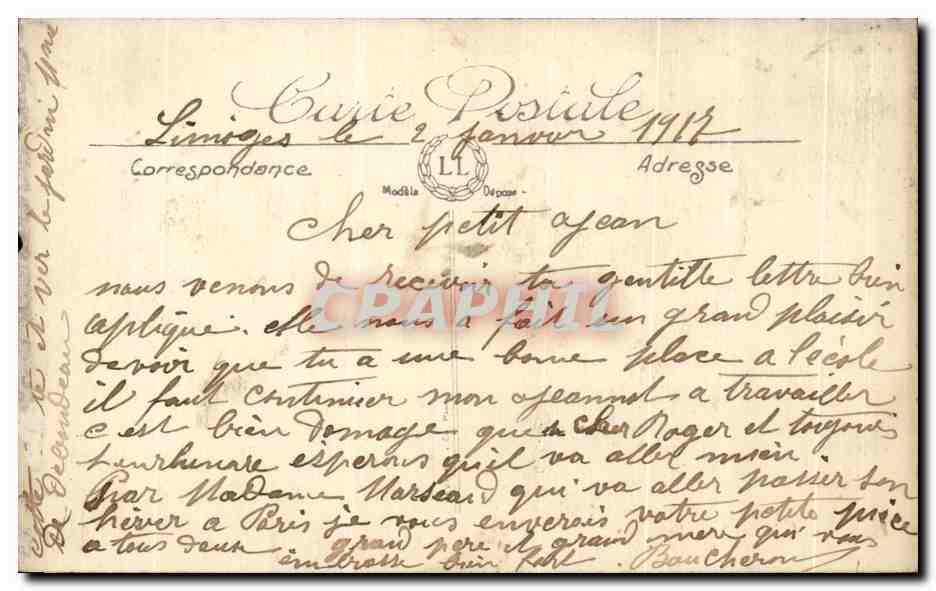 Carte Postale
Limoges le 2 janvier 1917
Correspondance
LL
Adresse
Modèle Déposé
Cher petit Jean
nous venons de recevoir ta gentille lettre bien
apliqué. elle nous a fait un grand plaisir
de voir que tu a une bonne place a l'école
il faut continuer mon Jeannot a travailler
c est bien domage que cher Roger et toujours
esperons qu'il va aller mieu.
Par Madame Marseaud qui va aller passer son
hiver a Paris je vous enverais votre petite piece
a tous deux. grand pere et grand mere qui vous
embrasse bien fort. Boucheron
Cette vue et ver le jardin
De
CPAPHIL